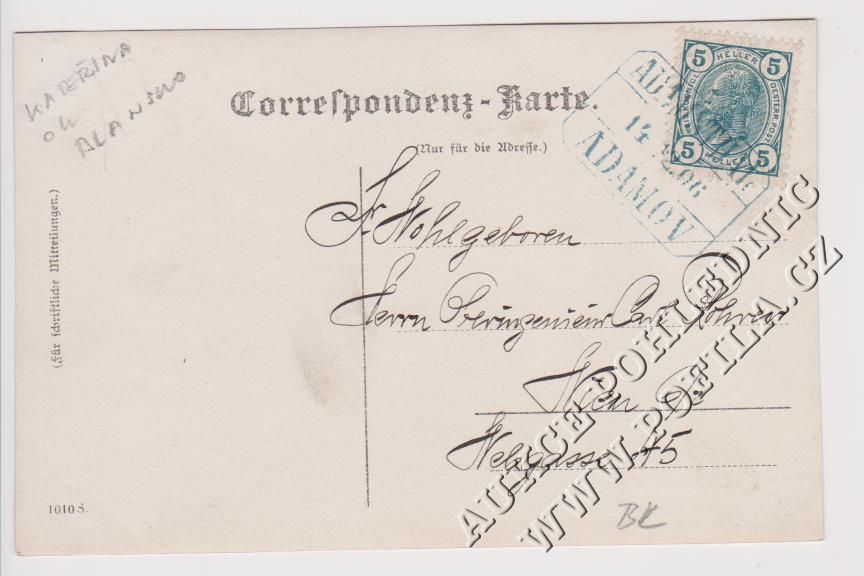 KATEŘINA
OK
BLANSKO
Correspondenz-Karte.
(Nur für die Adresse.)
(Für schriftliche Mitteilungen.)
5 HELLER 5
5 HELLER 5
14
06
ADAMOV
Wohlgeboren
Herrn Oberingenieur Carl
Wien
45
1010 S.
BK
AUKCE POHLEDNIC
WWW.POFILA.CZ